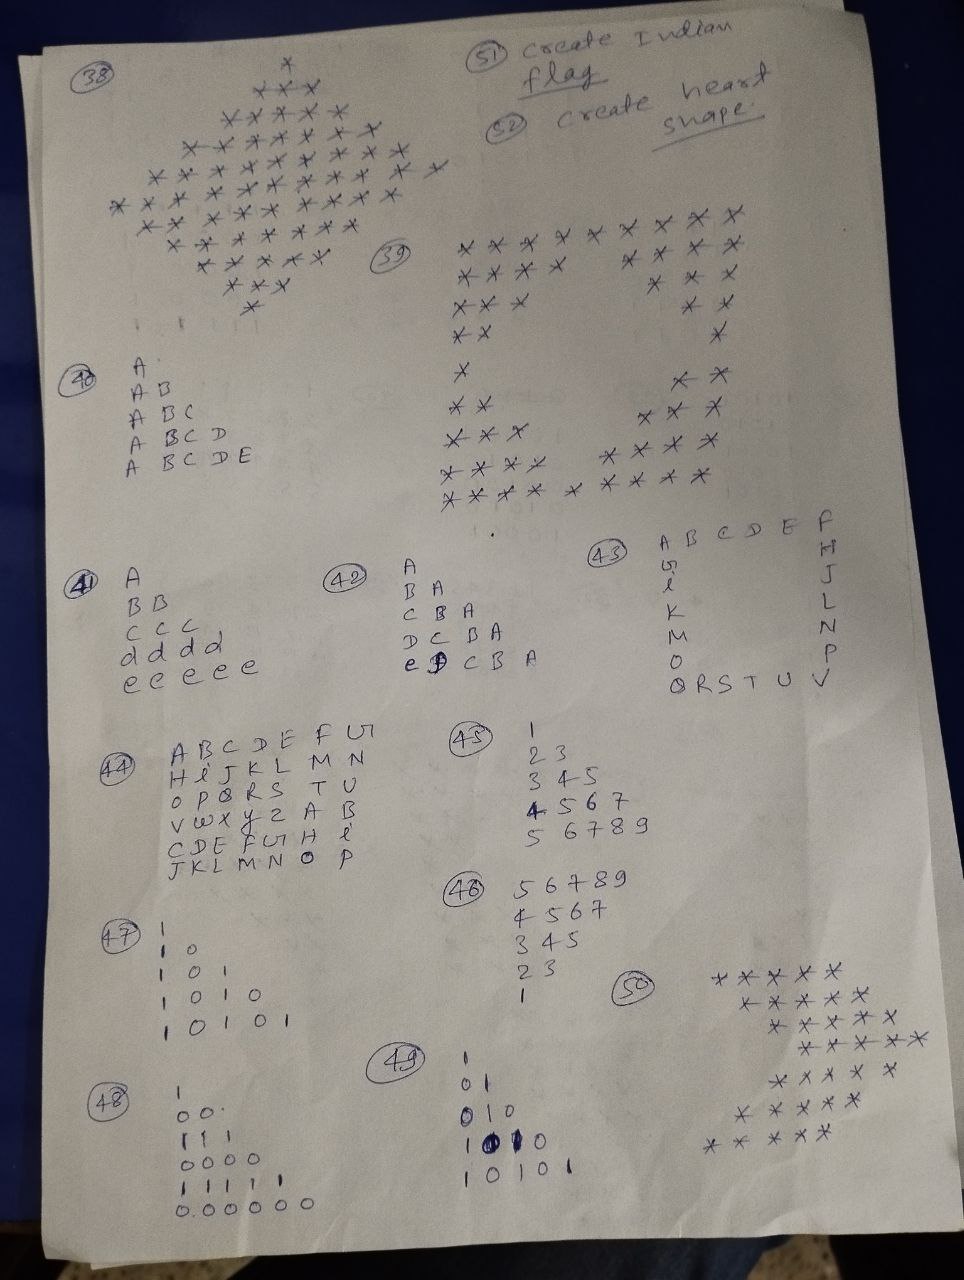 38
*
* * *
* * * * *
* * * * * * *
* * * * * * * * *
* * * * * * * * * * *
* * * * * * * * *
* * * * * * *
* * * * *
* * *
*
51 Create Indian
flag
52 Create heart
shape.
39
* * * * * * * * *
* * * * * * * *
* * * * * *
* * * *
* *
* * *
* * * * *
* * * * * * * *
* * * * * * * * *
40
A
A B
A B C
A B C D
A B C D E
41
A
B B
C C C
d d d d
e e e e e
42
A
B A
C B A
D C B A
e D C B A
43
A B C D E F
G H
I J
K L
M N
O P
Q R S T U V
44
A B C D E F G
H I J K L M N
O P Q R S T U
V W X Y Z A B
C D E F G H I
J K L M N O P
45
1
2 3
3 4 5
4 5 6 7
5 6 7 8 9
46
5 6 7 8 9
4 5 6 7
3 4 5
2 3
1
47
1
1 0
1 0 1
1 0 1 0
1 0 1 0 1
48
1
0 0
1 1 1
0 0 0 0
1 1 1 1 1
0 0 0 0 0 0
49
1
0 1
0 1 0
1 0 1 0
1 0 1 0 1
50
* * * * *
* * * * *
* * * * *
* * * * *
* * * * *
* * * * *
* * * * *